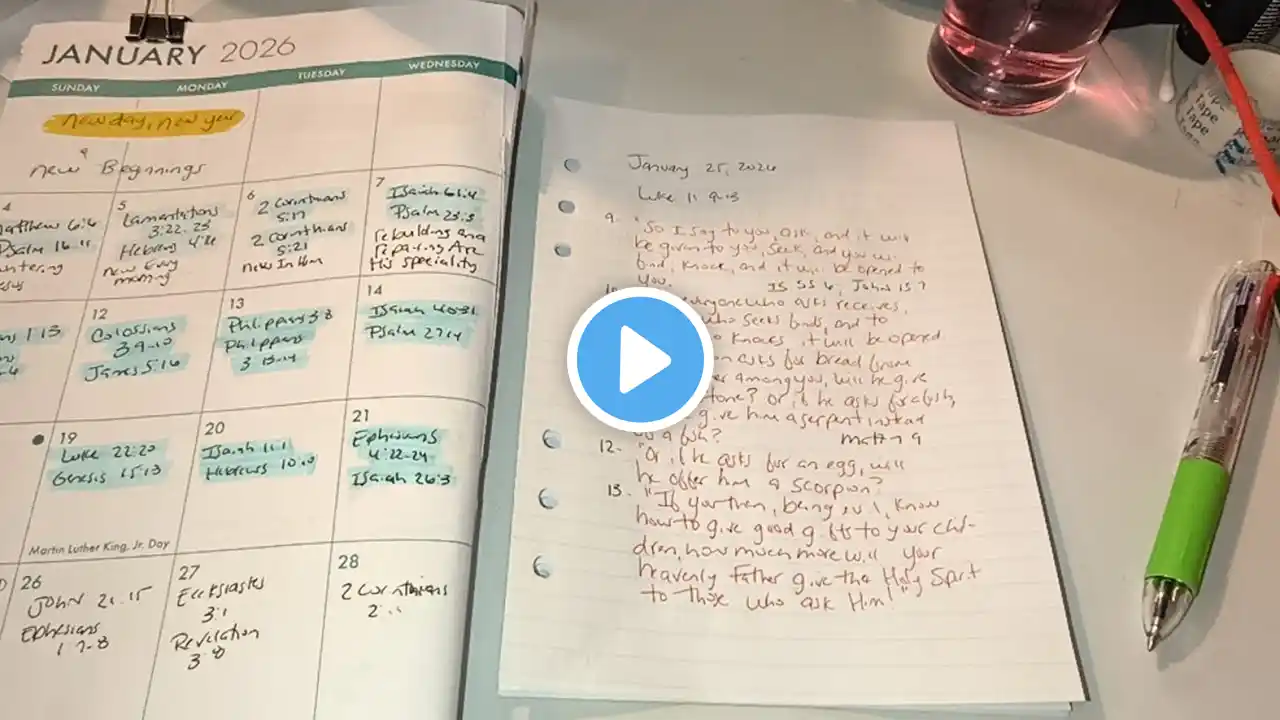 JANUARY 2026
SUNDAY MONDAY TUESDAY WEDNESDAY
new day, new year
new Beginnings
4
Matthew 6:6
Psalm 16:11
5
Lamentations
3:22-23
Hebrews
new Every
morning
6
2 Corinthians
5:17
2 Corinthians
5:21
new In Him
7
Isaiah 61:4
Psalm 23:3
rebuilding and
repairing Are
His speciality
1:13
12
Colossians
3 9-10
James 5:16
13
Philippians 3:8
Philippians
3 13-14
14
Isaiah 40:31
Psalm 27:14
19
Luke 22:20
Genesis 15:13
Martin Luther King, Jr. Day
20
Isaiah 11:1
Hebrews 10:10
21
Ephesians
4:22-24
Isaiah 26:3
26
JOHN 21:15
Ephesians
1 7-8
27
Ecclesiastes
3:1
Revelation
3:8
28
2 Corinthians
2:
January 25, 2026
Luke 11 9-13
9. "So I say to you, ask, and it will
be given to you, seek, and you will
find, knock, and it will be opened to
you. Is 55 6, John 15 7
everyone who asks receives,
who seeks finds, and to
knocks, it will be opened
asks for bread from
among you, will he give
stone? Or if he asks for a fish,
give him a serpent instead
of a fish? Matt 7 9
12. "Or if he asks for an egg, will
he offer him a scorpion?
13. "If you then, being evil, know
how to give good gifts to your chil-
dren, how much more will your
heavenly Father give the Holy Spirit
to those who ask Him!"
Tape
Tape